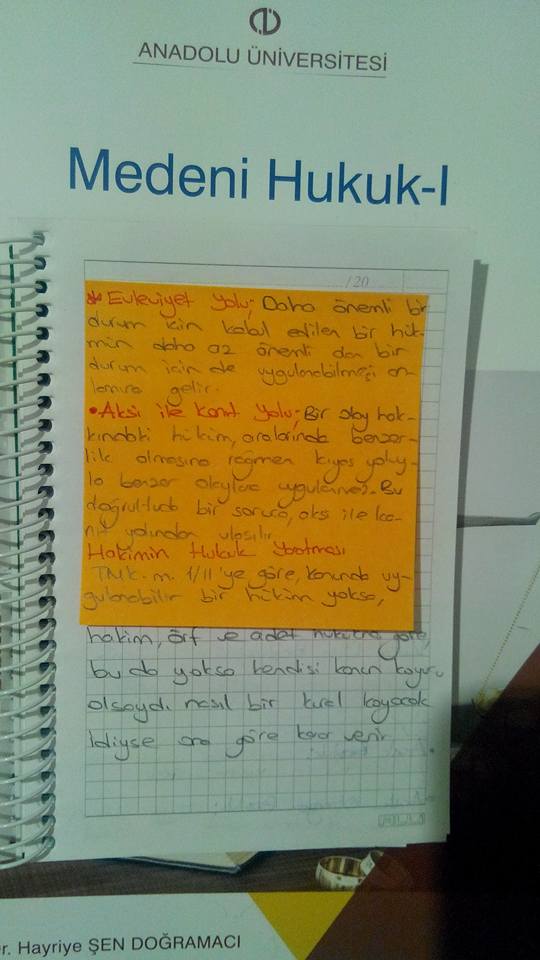 ANADOLU ÜNİVERSİTESİ
Medeni Hukuk-I
/20
* Evleviyet Yolu; Daha önemli bir
durum için kabul edilen bir hük-
mün daha az önemli olan bir
durum için de uygulanabilmesi an-
lamına gelir.
• Aksi ile Kanıt Yolu; Bir olay hak-
kındaki hüküm, aralarında benzer-
lik olmasına rağmen kıyas yoluy-
la benzer olaylara uygulanmaz. Bu
doğrultuda bir sonuca, aksi ile ka-
nıt yolundan ulaşılır.
Hakimin Hukuk Yaratması
TMK. m. 1/II'ye göre, kanunda uy-
gulanabilir bir hüküm yoksa,
hakim, örf ve adet hukukuna göre,
bu da yoksa kendisi kanun koyucu
olsaydı nasıl bir kural koyacak
idiyse ona göre karar verir.
r. Hayriye ŞEN DOĞRAMACI